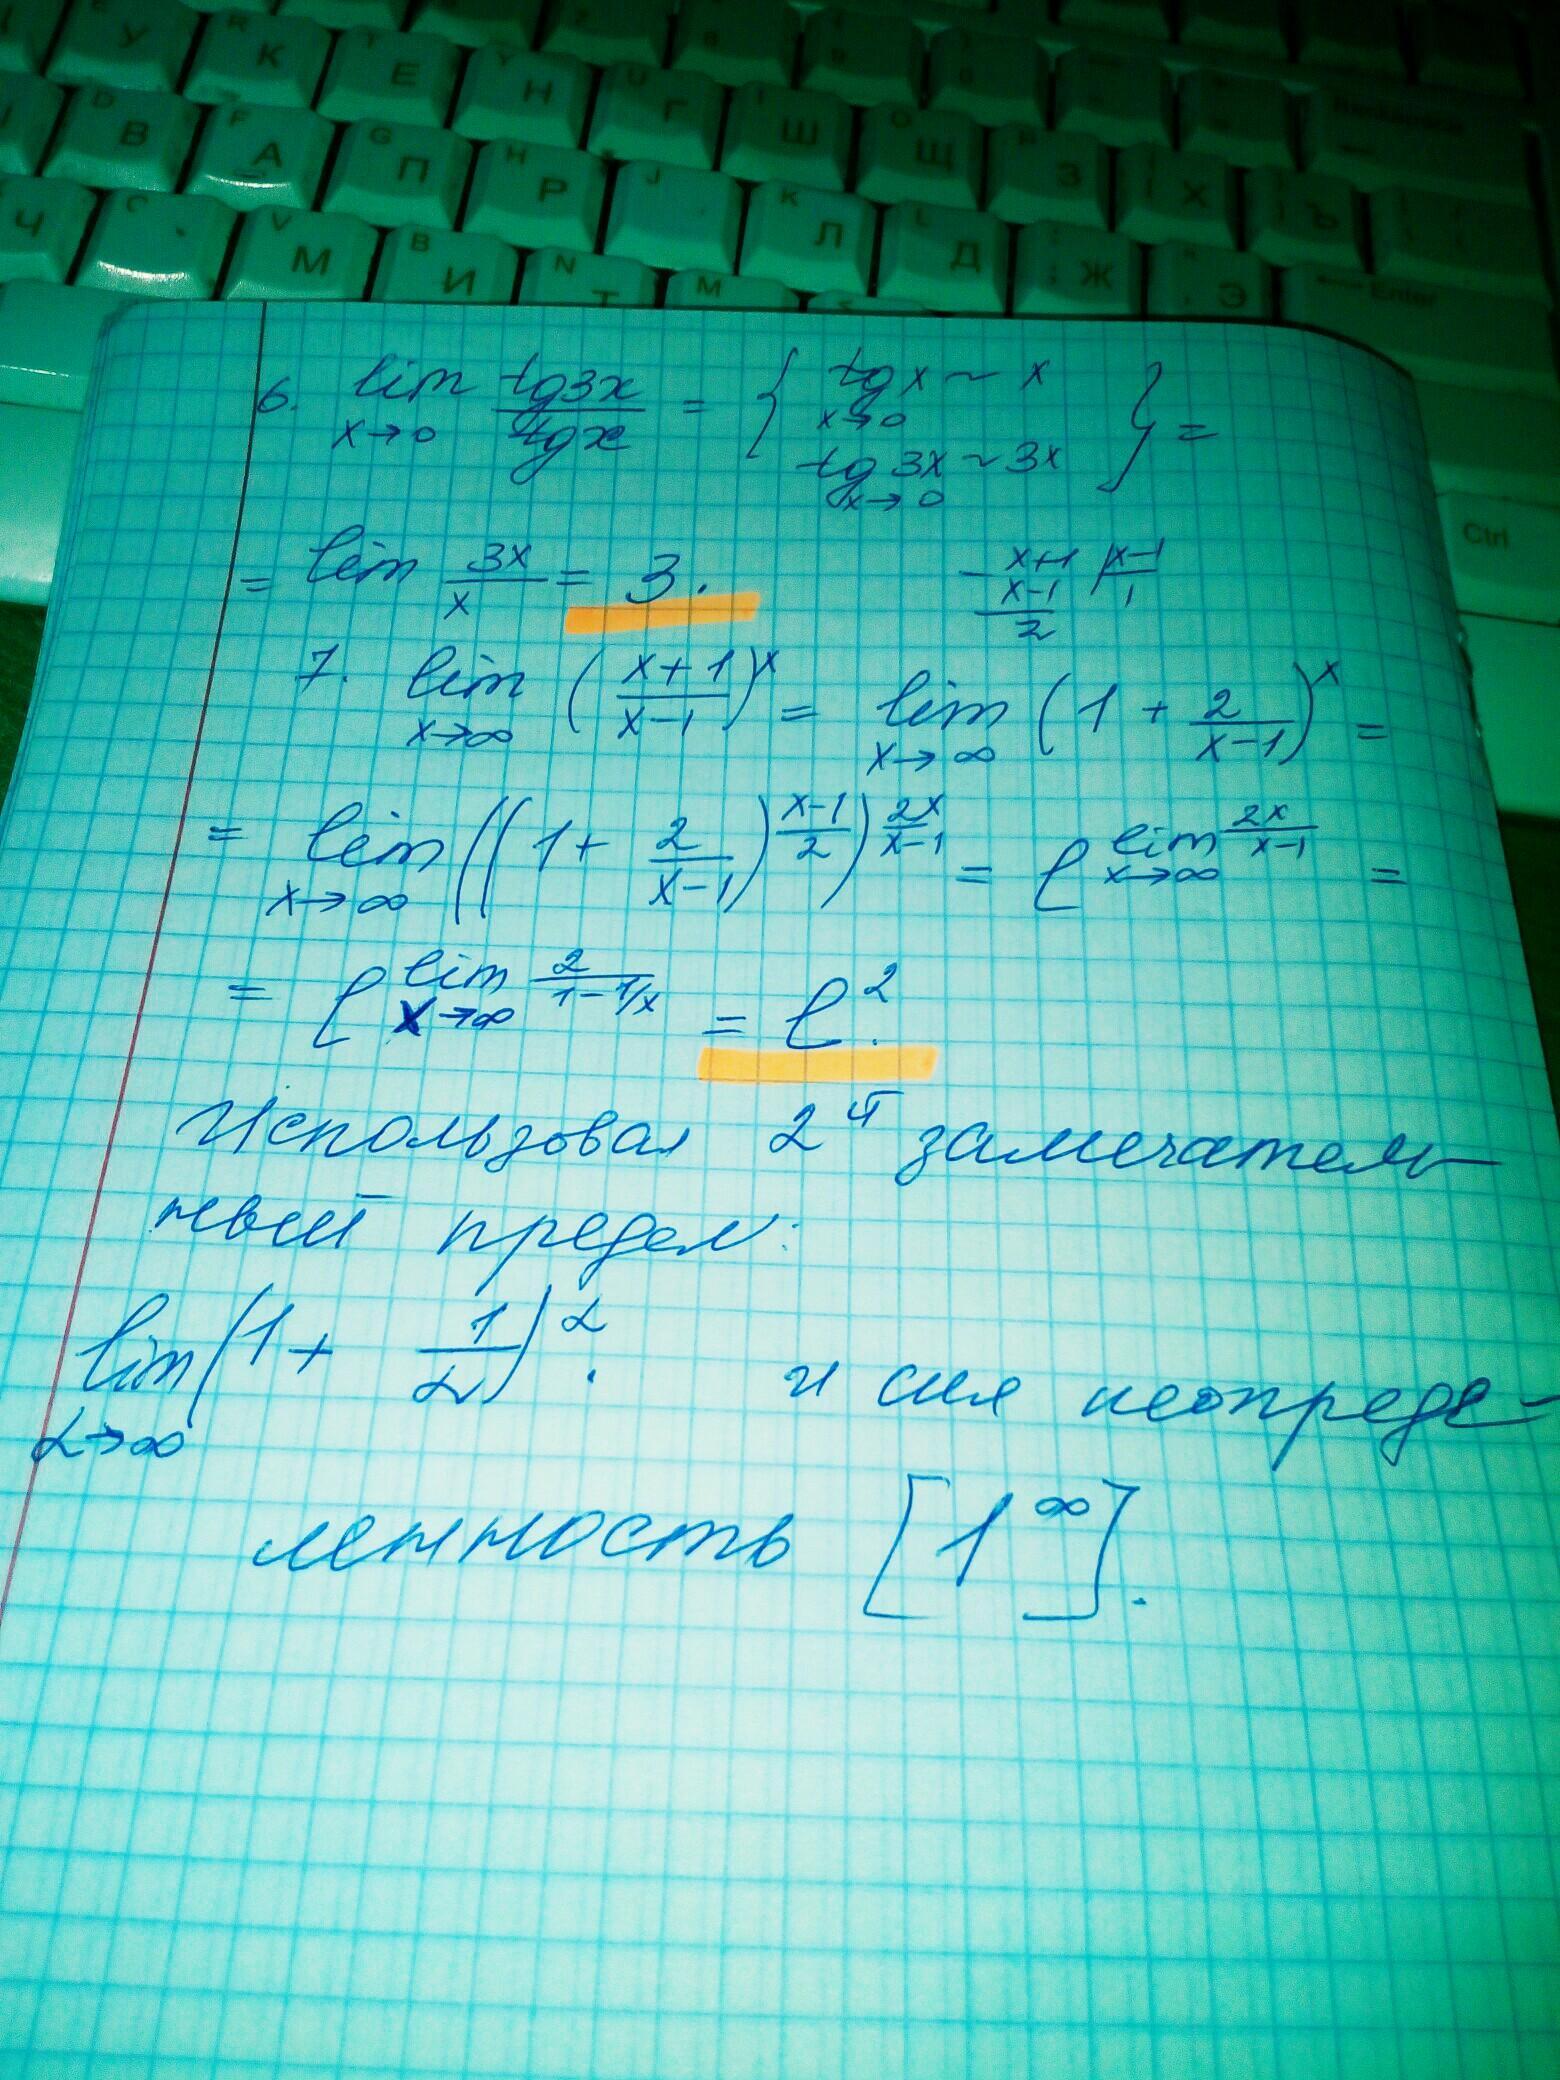 R T Y U I O P
У К Е Н Г Ш Щ З Х Ъ
D F G H J K L
В А П Р Л Д Ж Э Enter
C V B N M
Ч М И Т
Ctrl
6. lim x→0 tg3x/tgx = { tgx ~ x x→0
tg3x ~ 3x x→0 } =
= lim 3x/x = 3.
x+1 | x-1
x-1 | 1
2
7. lim x→∞ ((x+1)/(x-1))^x = lim x→∞ (1 + 2/(x-1))^x =
= lim x→∞ ((1 + 2/(x-1))^((x-1)/2))^(2x/(x-1)) = e^(lim x→∞ 2x/(x-1)) =
= e^(lim x→∞ 2/(1-1/x)) = e².
Использовал 2й замечатель-
ный предел:
lim α→∞ (1 + 1/α)^α. и сия неопреде-
ленность [1^∞].